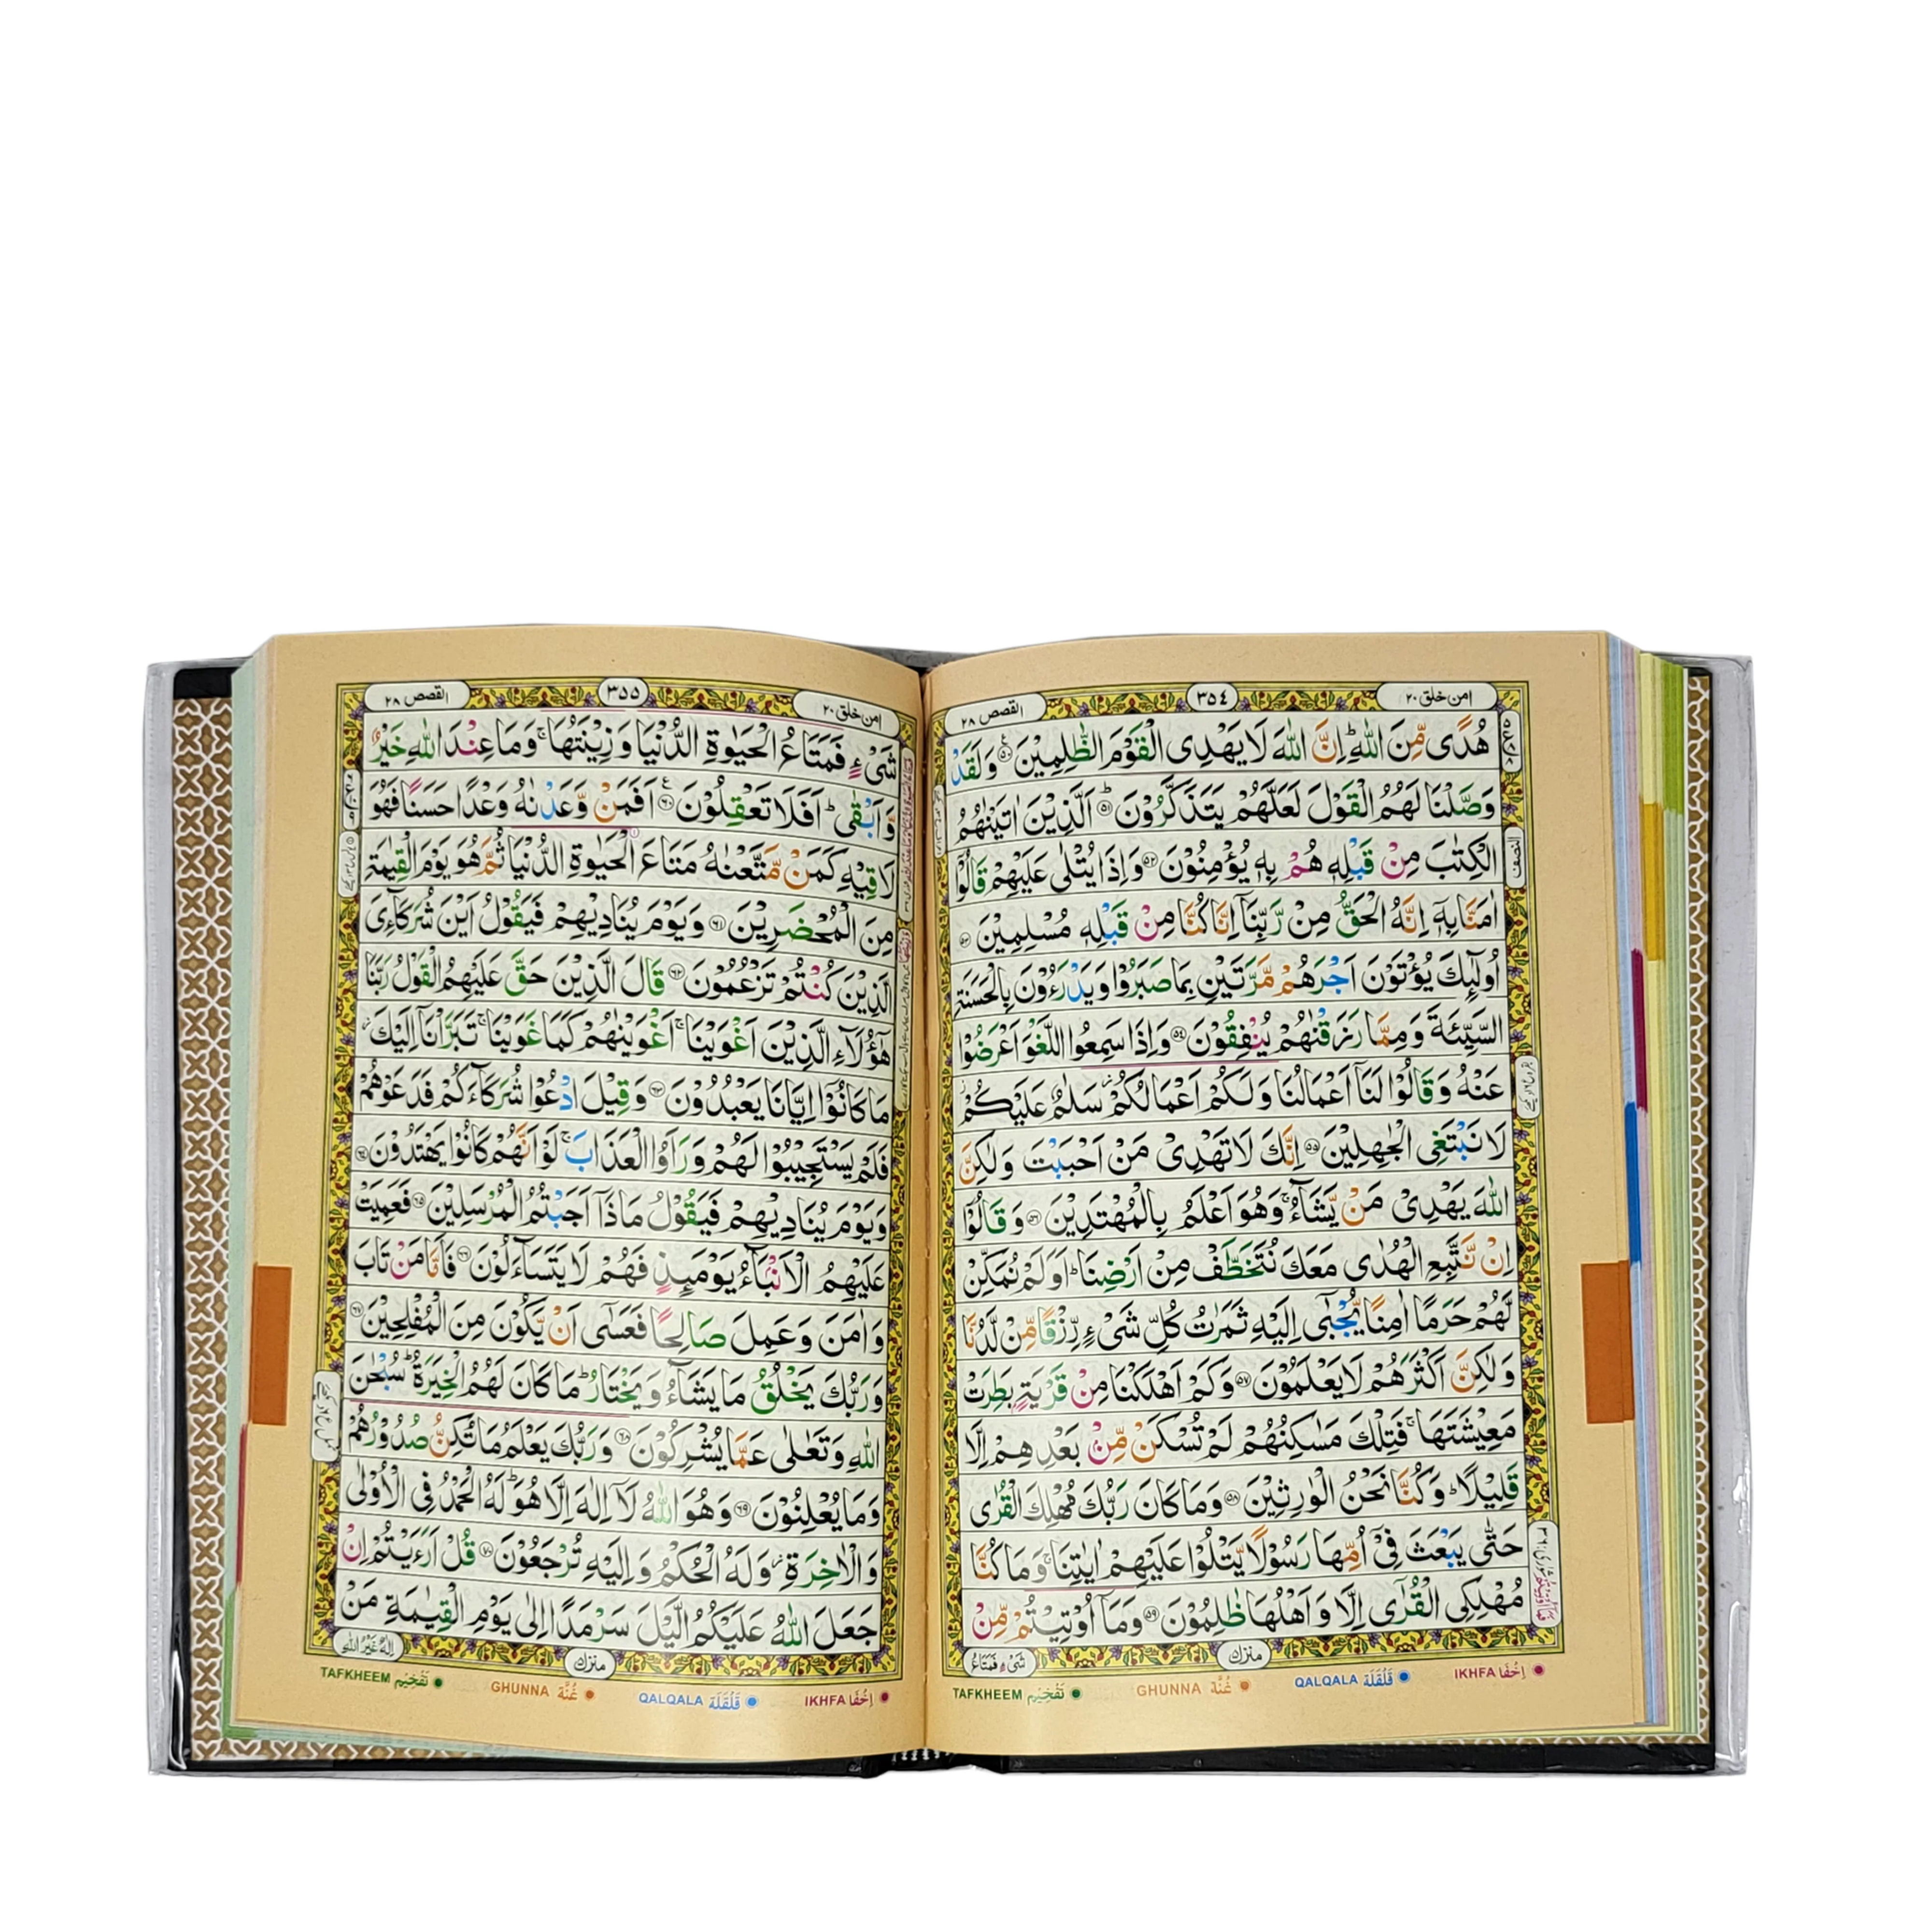 امن خلق ٢٠
٣٥٤
القصص ٢٨
هُدًى مِّنَ اللّٰهِ ؕ اِنَّ اللّٰهَ لَا يَهْدِى الْقَوْمَ الظّٰلِمِيْنَ ﴿٥٠﴾ وَلَقَدْ
وَصَّلْنَا لَهُمُ الْقَوْلَ لَعَلَّهُمْ يَتَذَكَّرُوْنَ ؕ﴿٥١﴾ اَلَّذِيْنَ اٰتَيْنٰهُمُ
الْكِتٰبَ مِنْ قَبْلِهٖ هُمْ بِهٖ يُؤْمِنُوْنَ ﴿٥٢﴾ وَاِذَا يُتْلٰى عَلَيْهِمْ قَالُوْۤا
اٰمَنَّا بِهٖۤ اِنَّهُ الْحَقُّ مِنْ رَّبِّنَاۤ اِنَّا كُنَّا مِنْ قَبْلِهٖ مُسْلِمِيْنَ ﴿٥٣﴾
اُولٰٓئِكَ يُؤْتَوْنَ اَجْرَهُمْ مَّرَّتَيْنِ بِمَا صَبَرُوْا وَيَدْرَءُوْنَ بِالْحَسَنَةِ
السَّيِّئَةَ وَمِمَّا رَزَقْنٰهُمْ يُنْفِقُوْنَ ﴿٥٤﴾ وَاِذَا سَمِعُوا اللَّغْوَ اَعْرَضُوْا
عَنْهُ وَقَالُوْا لَنَاۤ اَعْمَالُنَا وَلَكُمْ اَعْمَالُكُمْ ؗ سَلٰمٌ عَلَيْكُمْ ؗ
لَا نَبْتَغِى الْجٰهِلِيْنَ ﴿٥٥﴾ اِنَّكَ لَا تَهْدِىْ مَنْ اَحْبَبْتَ وَلٰكِنَّ
اللّٰهَ يَهْدِىْ مَنْ يَّشَآءُ ۚ وَهُوَ اَعْلَمُ بِالْمُهْتَدِيْنَ ﴿٥٦﴾ وَقَالُوْۤا
اِنْ نَّتَّبِعِ الْهُدٰى مَعَكَ نُتَخَطَّفْ مِنْ اَرْضِنَا ؕ اَوَلَمْ نُمَكِّنْ
لَّهُمْ حَرَمًا اٰمِنًا يُّجْبٰٓى اِلَيْهِ ثَمَرٰتُ كُلِّ شَىْءٍ رِّزْقًا مِّنْ لَّدُنَّا
وَلٰكِنَّ اَكْثَرَهُمْ لَا يَعْلَمُوْنَ ﴿٥٧﴾ وَكَمْ اَهْلَكْنَا مِنْ قَرْيَةٍۭ بَطِرَتْ
مَعِيْشَتَهَا ۚ فَتِلْكَ مَسٰكِنُهُمْ لَمْ تُسْكَنْ مِّنْۢ بَعْدِهِمْ اِلَّا
قَلِيْلًا ؕ وَكُنَّا نَحْنُ الْوٰرِثِيْنَ ﴿٥٨﴾ وَمَا كَانَ رَبُّكَ مُهْلِكَ الْقُرٰى
حَتّٰى يَبْعَثَ فِىْۤ اُمِّهَا رَسُوْلًا يَّتْلُوْا عَلَيْهِمْ اٰيٰتِنَا ۚ وَمَا كُنَّا
مُهْلِكِى الْقُرٰٓى اِلَّا وَاَهْلُهَا ظٰلِمُوْنَ ﴿٥٩﴾ وَمَاۤ اُوْتِيْتُمْ مِّنْ
النصف
منزل
شَىْءٍ فَمَتَاعُ
IKHFA اِخْفَا
QALQALA قَلْقَلَة
GHUNNA غُنَّة
TAFKHEEM تَفْخِيْم
امن خلق ٢٠
٣٥٥
القصص ٢٨
شَىْءٍ فَمَتَاعُ الْحَيٰوةِ الدُّنْيَا وَزِيْنَتُهَا ۚ وَمَا عِنْدَ اللّٰهِ خَيْرٌ
وَّاَبْقٰى ؕ اَفَلَا تَعْقِلُوْنَ ﴿٦٠﴾ اَفَمَنْ وَّعَدْنٰهُ وَعْدًا حَسَنًا فَهُوَ
لَاقِيْهِ كَمَنْ مَّتَّعْنٰهُ مَتَاعَ الْحَيٰوةِ الدُّنْيَا ثُمَّ هُوَ يَوْمَ الْقِيٰمَةِ
مِنَ الْمُحْضَرِيْنَ ﴿٦١﴾ وَيَوْمَ يُنَادِيْهِمْ فَيَقُوْلُ اَيْنَ شُرَكَآءِىَ
الَّذِيْنَ كُنْتُمْ تَزْعُمُوْنَ ﴿٦٢﴾ قَالَ الَّذِيْنَ حَقَّ عَلَيْهِمُ الْقَوْلُ رَبَّنَا
هٰٓؤُلَآءِ الَّذِيْنَ اَغْوَيْنَا ۚ اَغْوَيْنٰهُمْ كَمَا غَوَيْنَا ۚ تَبَرَّاْنَاۤ اِلَيْكَ ؗ
مَا كَانُوْۤا اِيَّانَا يَعْبُدُوْنَ ﴿٦٣﴾ وَقِيْلَ ادْعُوْا شُرَكَآءَكُمْ فَدَعَوْهُمْ
فَلَمْ يَسْتَجِيْبُوْا لَهُمْ وَرَاَوُا الْعَذَابَ ۚ لَوْ اَنَّهُمْ كَانُوْا يَهْتَدُوْنَ ﴿٦٤﴾
وَيَوْمَ يُنَادِيْهِمْ فَيَقُوْلُ مَاذَاۤ اَجَبْتُمُ الْمُرْسَلِيْنَ ﴿٦٥﴾ فَعَمِيَتْ
عَلَيْهِمُ الْاَنْۢبَآءُ يَوْمَئِذٍ فَهُمْ لَا يَتَسَآءَلُوْنَ ﴿٦٦﴾ فَاَمَّا مَنْ تَابَ
وَاٰمَنَ وَعَمِلَ صَالِحًا فَعَسٰٓى اَنْ يَّكُوْنَ مِنَ الْمُفْلِحِيْنَ ﴿٦٧﴾
وَرَبُّكَ يَخْلُقُ مَا يَشَآءُ وَيَخْتَارُ ؕ مَا كَانَ لَهُمُ الْخِيَرَةُ ؕ سُبْحٰنَ
اللّٰهِ وَتَعٰلٰى عَمَّا يُشْرِكُوْنَ ﴿٦٨﴾ وَرَبُّكَ يَعْلَمُ مَا تُكِنُّ صُدُوْرُهُمْ
وَمَا يُعْلِنُوْنَ ﴿٦٩﴾ وَهُوَ اللّٰهُ لَاۤ اِلٰهَ اِلَّا هُوَ ؕ لَهُ الْحَمْدُ فِى الْاُوْلٰى
وَالْاٰخِرَةِ ؗ وَلَهُ الْحُكْمُ وَاِلَيْهِ تُرْجَعُوْنَ ﴿٧٠﴾ قُلْ اَرَءَيْتُمْ اِنْ
جَعَلَ اللّٰهُ عَلَيْكُمُ الَّيْلَ سَرْمَدًا اِلٰى يَوْمِ الْقِيٰمَةِ مَنْ
منزل
اِلٰهٌ غَيْرُ اللّٰهِ
IKHFA اِخْفَا
QALQALA قَلْقَلَة
GHUNNA غُنَّة
TAFKHEEM تَفْخِيْم